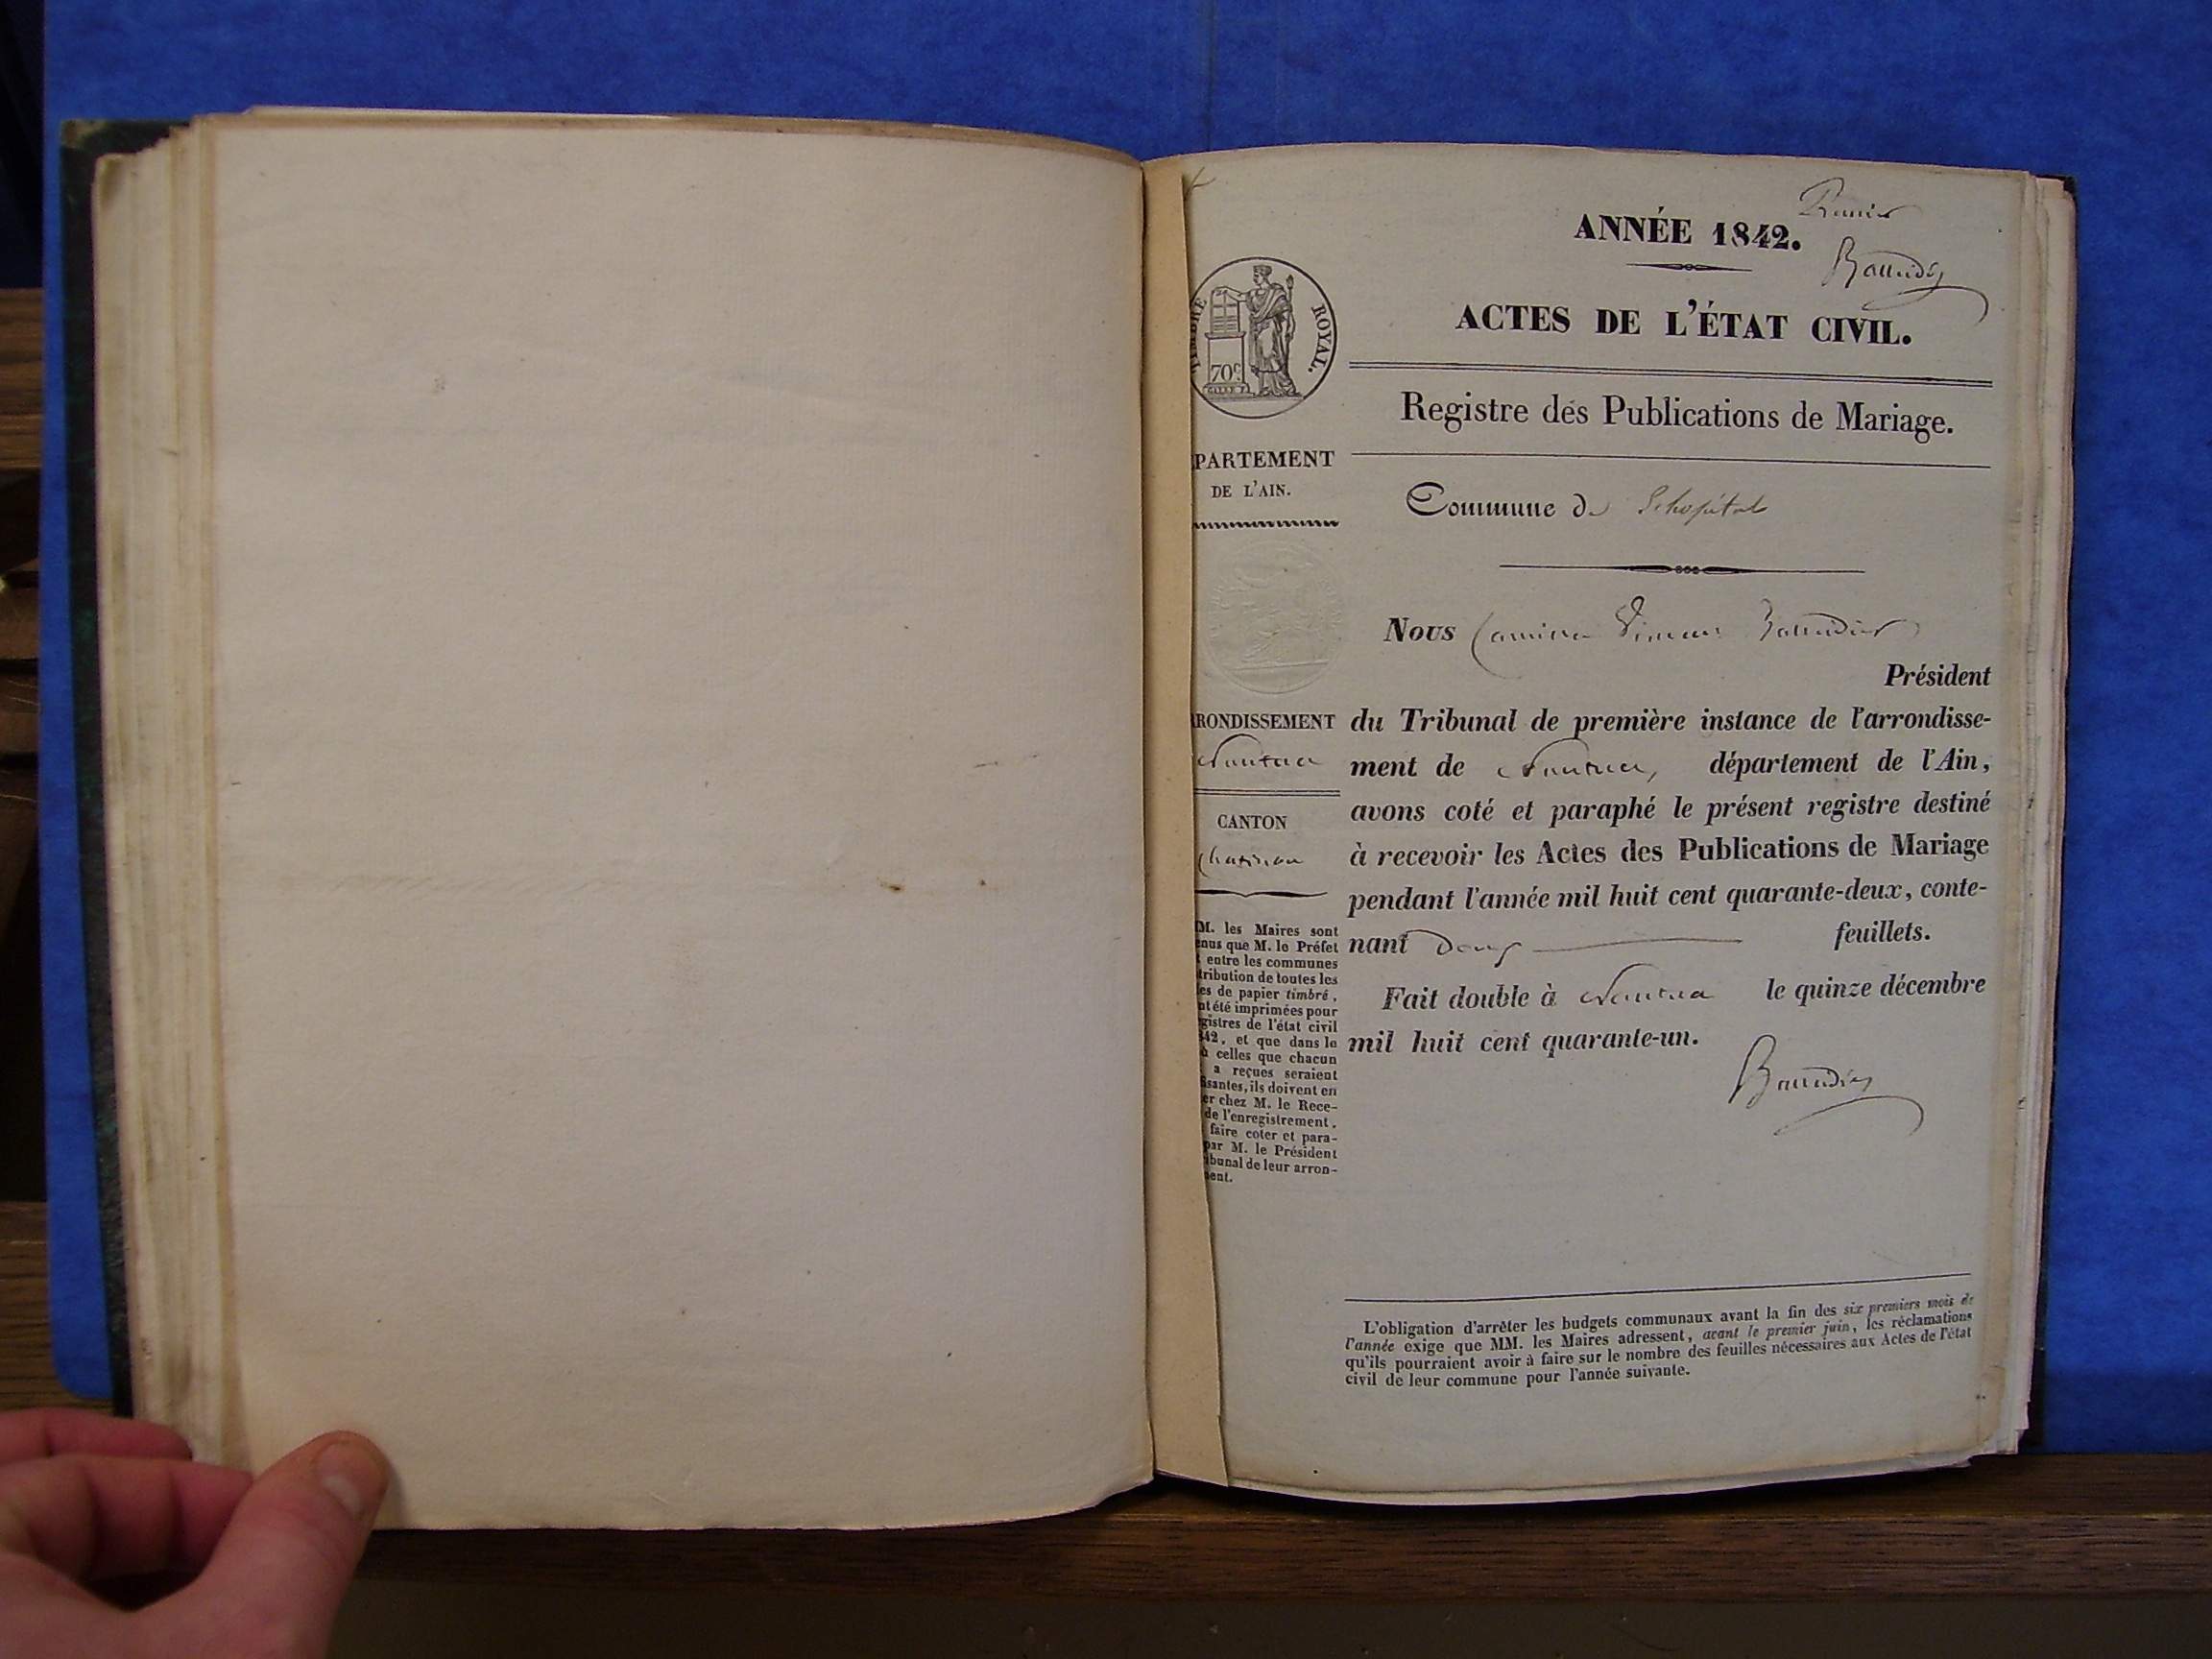 Premier
ANNÉE 1842.
Baudier
ACTES DE L'ÉTAT CIVIL.
TIMBRE ROYAL.
70c
Registre des Publications de Mariage.
PARTEMENT
DE L'AIN.
Commune de L'hopital
Nous Baudier
Président
RRONDISSEMENT
Nantua
du Tribunal de première instance de l'arrondisse-
ment de Nantua, département de l'Ain,
avons coté et paraphé le présent registre destiné
à recevoir les Actes des Publications de Mariage
pendant l'année mil huit cent quarante-deux, conte-
nant deux feuillets.
Fait double à Nantua le quinze décembre
mil huit cent quarante-un.
Baudier
CANTON
Chatillon
M. les Maires sont
enus que M. le Préfet
t entre les communes
tribution de toutes les
es de papier timbré,
nt été imprimées pour
gistres de l'état civil
42, et que dans le
ù celles que chacun
a reçues seraient
isantes, ils doivent en
er chez M. le Rece-
de l'enregistrement,
faire coter et para-
par M. le Président
ibunal de leur arron-
ment.
L'obligation d'arrêter les budgets communaux avant la fin des six premiers mois de
l'année exige que MM. les Maires adressent, avant le premier juin, les réclamations
qu'ils pourraient avoir à faire sur le nombre des feuilles nécessaires aux Actes de l'état
civil de leur commune pour l'année suivante.